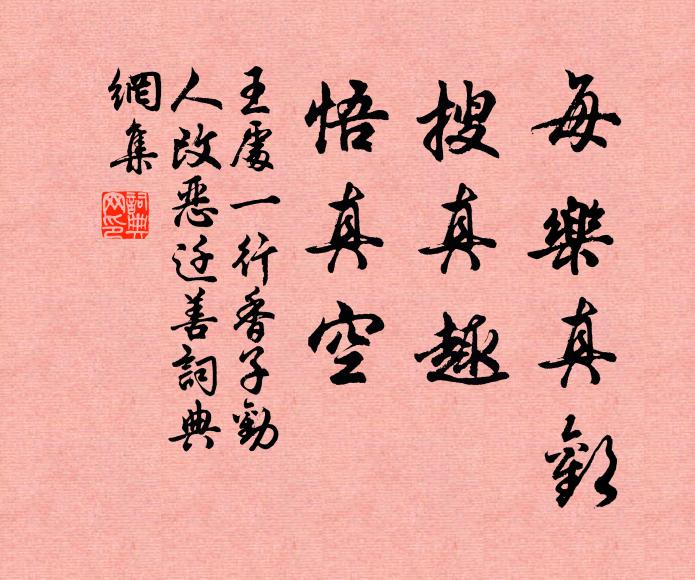 每樂真歡
搜真趣
悟真空
王處一行香子勸
人改惡迁善詞典
網集
詞典網印